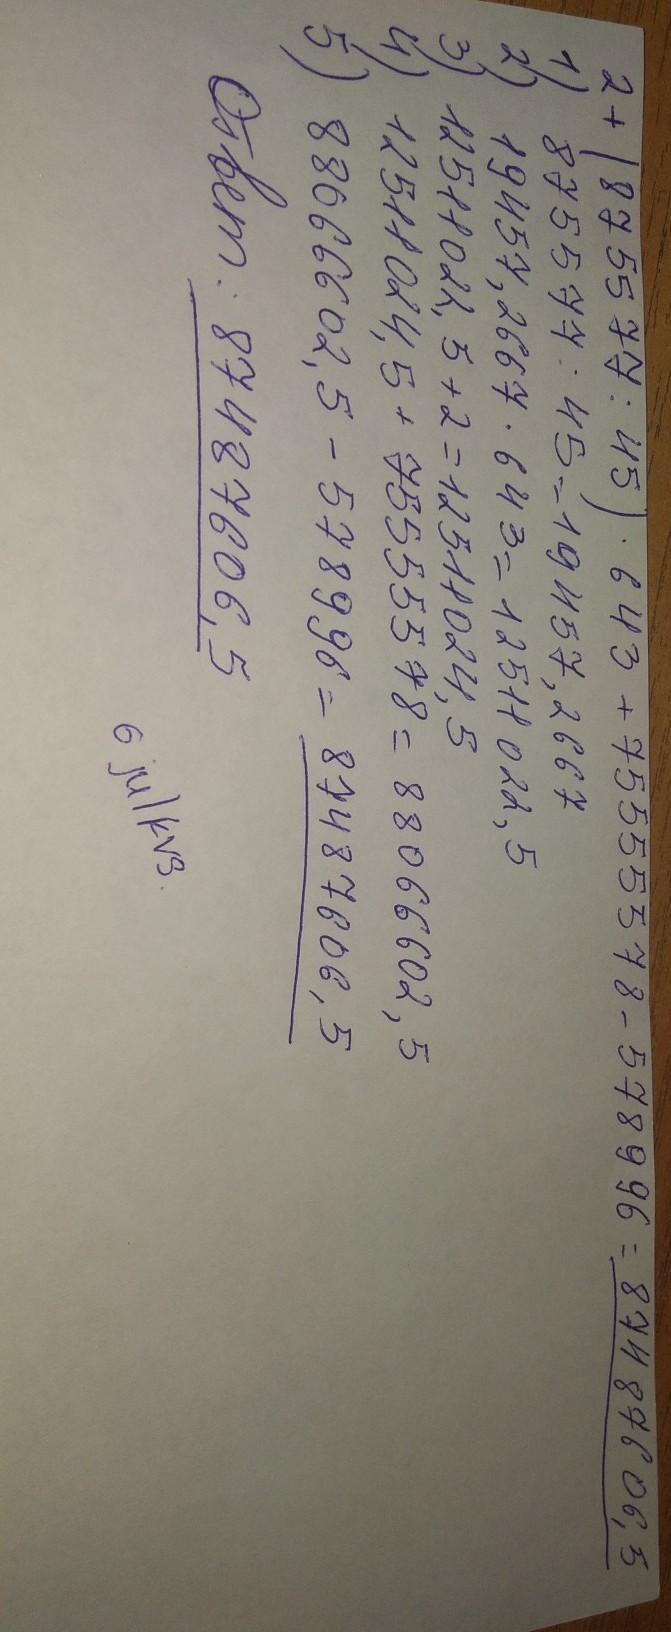 2 + (875577 : 45) · 643 + 75555578 - 578996 = 87487606,5
1) 875577 : 45 = 19457,2667
2) 19457,2667 · 643 = 12511022,5
3) 12511022,5 + 2 = 12511024,5
4) 12511024,5 + 75555578 = 88066602,5
5) 88066602,5 - 578996 = 87487606,5
Ответ: 87487606,5
6 julkvs.